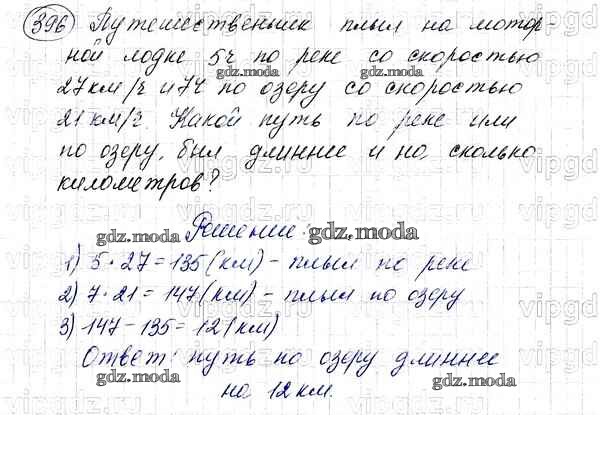 396 Путешественник плыл на мотор-
ной лодке 5ч по реке со скоростью
27км/ч и 7ч по озеру со скоростью
21км/ч. Какой путь по реке или
по озеру, был длиннее и на сколько
километров?
Решение:
1) 5·27=135(км)- плыл по реке
2) 7·21=147(км)- плыл по озеру
3) 147-135=12(км)
Ответ: путь по озеру длиннее
на 12км.